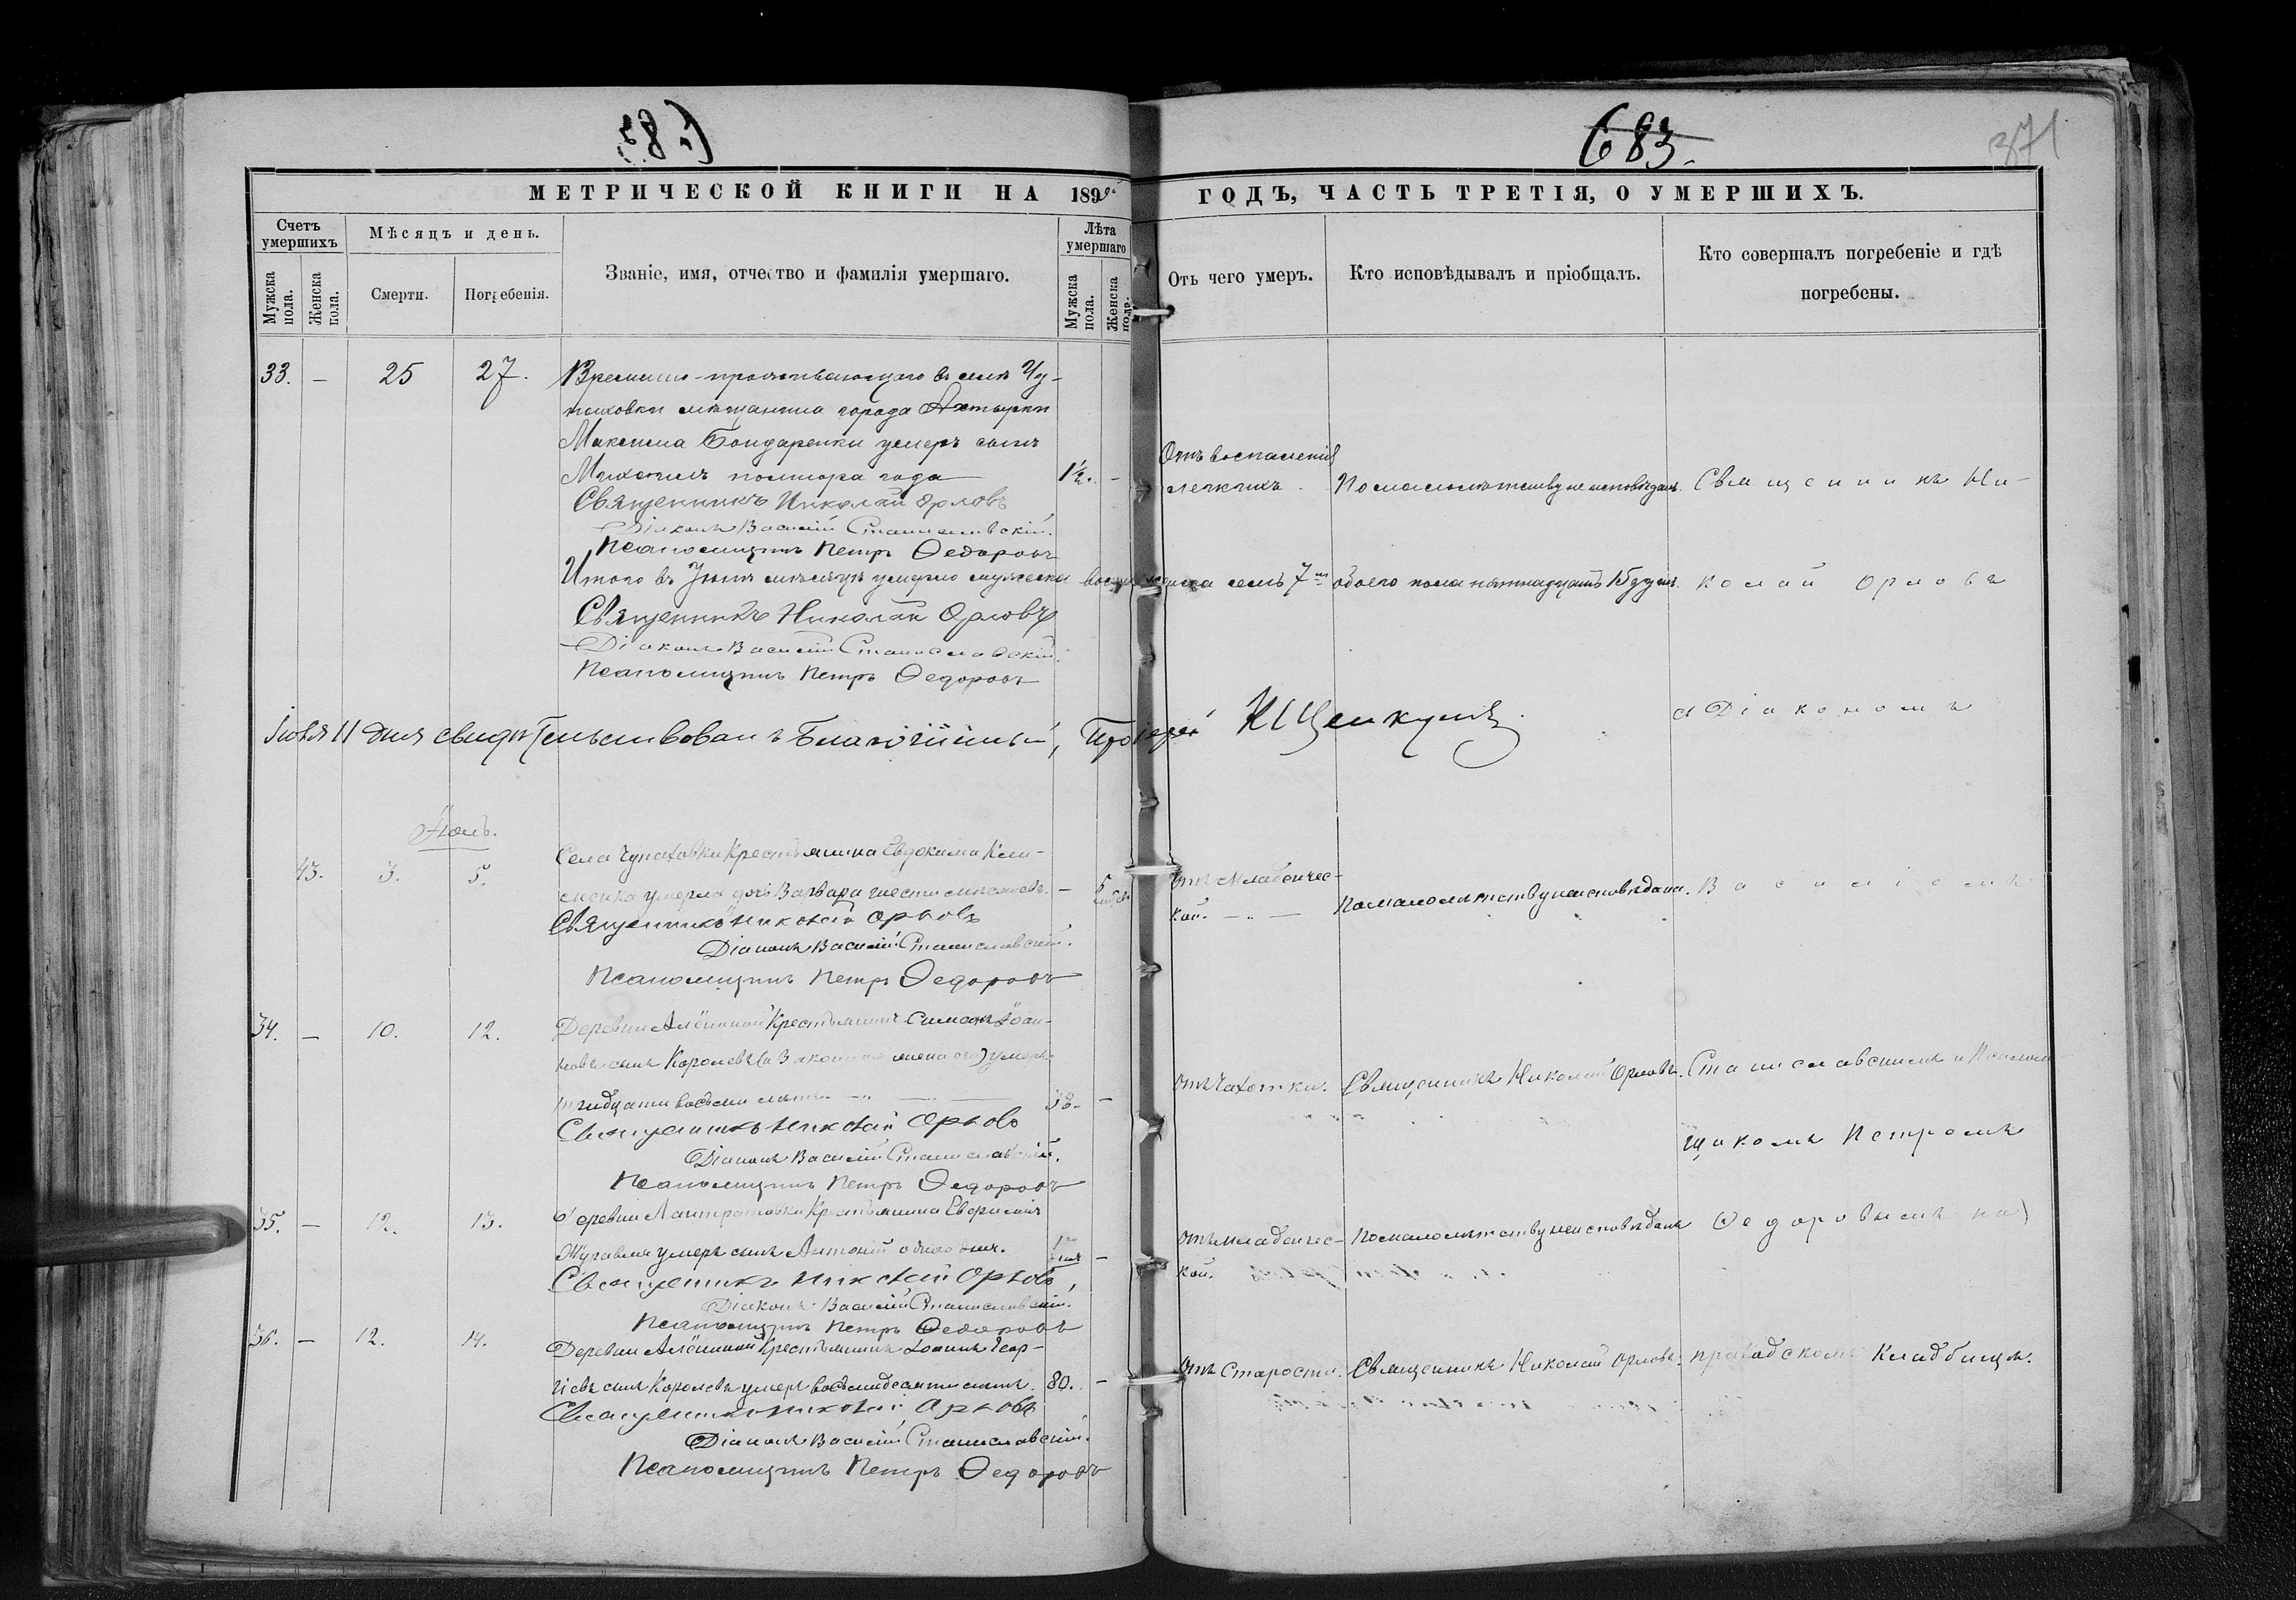 683.
371
МЕТРИЧЕСКОЙ КНИГИ НА 189 ГОДЪ, ЧАСТЬ ТРЕТІЯ, О УМЕРШИХЪ.
Счетъ умершихъ
Мѣсяцъ и день.
Званіе, имя, отчество и фамилія умершаго.
Лѣта умершаго
Отъ чего умеръ.
Кто исповѣдывалъ и пріобщалъ.
Кто совершалъ погребеніе и гдѣ погребены.
Мужска пола.
Женска пола.
Смерти.
Погребенія.
Мужска пола.
Женска пола.
33. — 25 27. Временно-проживающаго въ селѣ Чу-
паховки мѣщанина города Ахтырки
Максима Бондаренки умеръ сынъ
Михаилъ полтора года 1½. — Отъ воспаленія легкихъ. По малолѣтству не исповѣданъ. Священникъ Ни-
Священникъ Николай Орловъ
Діаконъ Василій Станиславскій.
Псаломщикъ Петръ Ѳедоровъ
Итого въ Іюнѣ мѣсяцѣ умерло мужеска женска семь 7 обоего пола пятнадцать 15 душъ. колай Орловъ
Священникъ Николай Орловъ
Діаконъ Василій Станиславскій.
Псаломщикъ Петръ Ѳедоровъ
съ Діакономъ
Іюля 11 дня свидѣтельствовалъ Благочинный, Протоіерей
Іюль.
43. 3. 5. Села Чупаховки Крестьянина Евдокима Кли-
менка умерла дочь Варвара шести мѣсяцевъ. — Отъ младенчес-
кой. По малолѣтству неисповѣдана. Василіемъ
Священникъ Николай Орловъ
Діаконъ Василій Станиславскій.
Псаломщикъ Петръ Ѳедоровъ
34. — 10. 12. Деревни Алёшиной Крестьянинъ Симеонъ Іоан-
новъ сынъ Королевъ умеръ
тридцати восьми лѣтъ 38. — Отъ Чахотки. Священникъ Николай Орловъ. Станиславскимъ и Псалом-
Священникъ Николай Орловъ
Діаконъ Василій Станиславскій.
щикомъ Петромъ
Псаломщикъ Петръ Ѳедоровъ
35. — 12. 13. Деревни Крестьянина
Журавля умеръ сынъ Антоній одного дня. 1 дня — Отъ младенчес-
кой. По малолѣтству неисповѣданъ Ѳедоровымъ на
Священникъ Николай Орловъ
Діаконъ Василій Станиславскій.
Псаломщикъ Петръ Ѳедоровъ
36. — 12. 14. Деревни Алёшиной Крестьянинъ Іоаннъ Геор-
гіевъ сынъ Королевъ умеръ восьмидесяти лѣтъ. 80. — Отъ Старости. Священникъ Николай Орловъ. приходскомъ Кладбищѣ.
Священникъ Николай Орловъ
Діаконъ Василій Станиславскій.
Псаломщикъ Петръ Ѳедоровъ